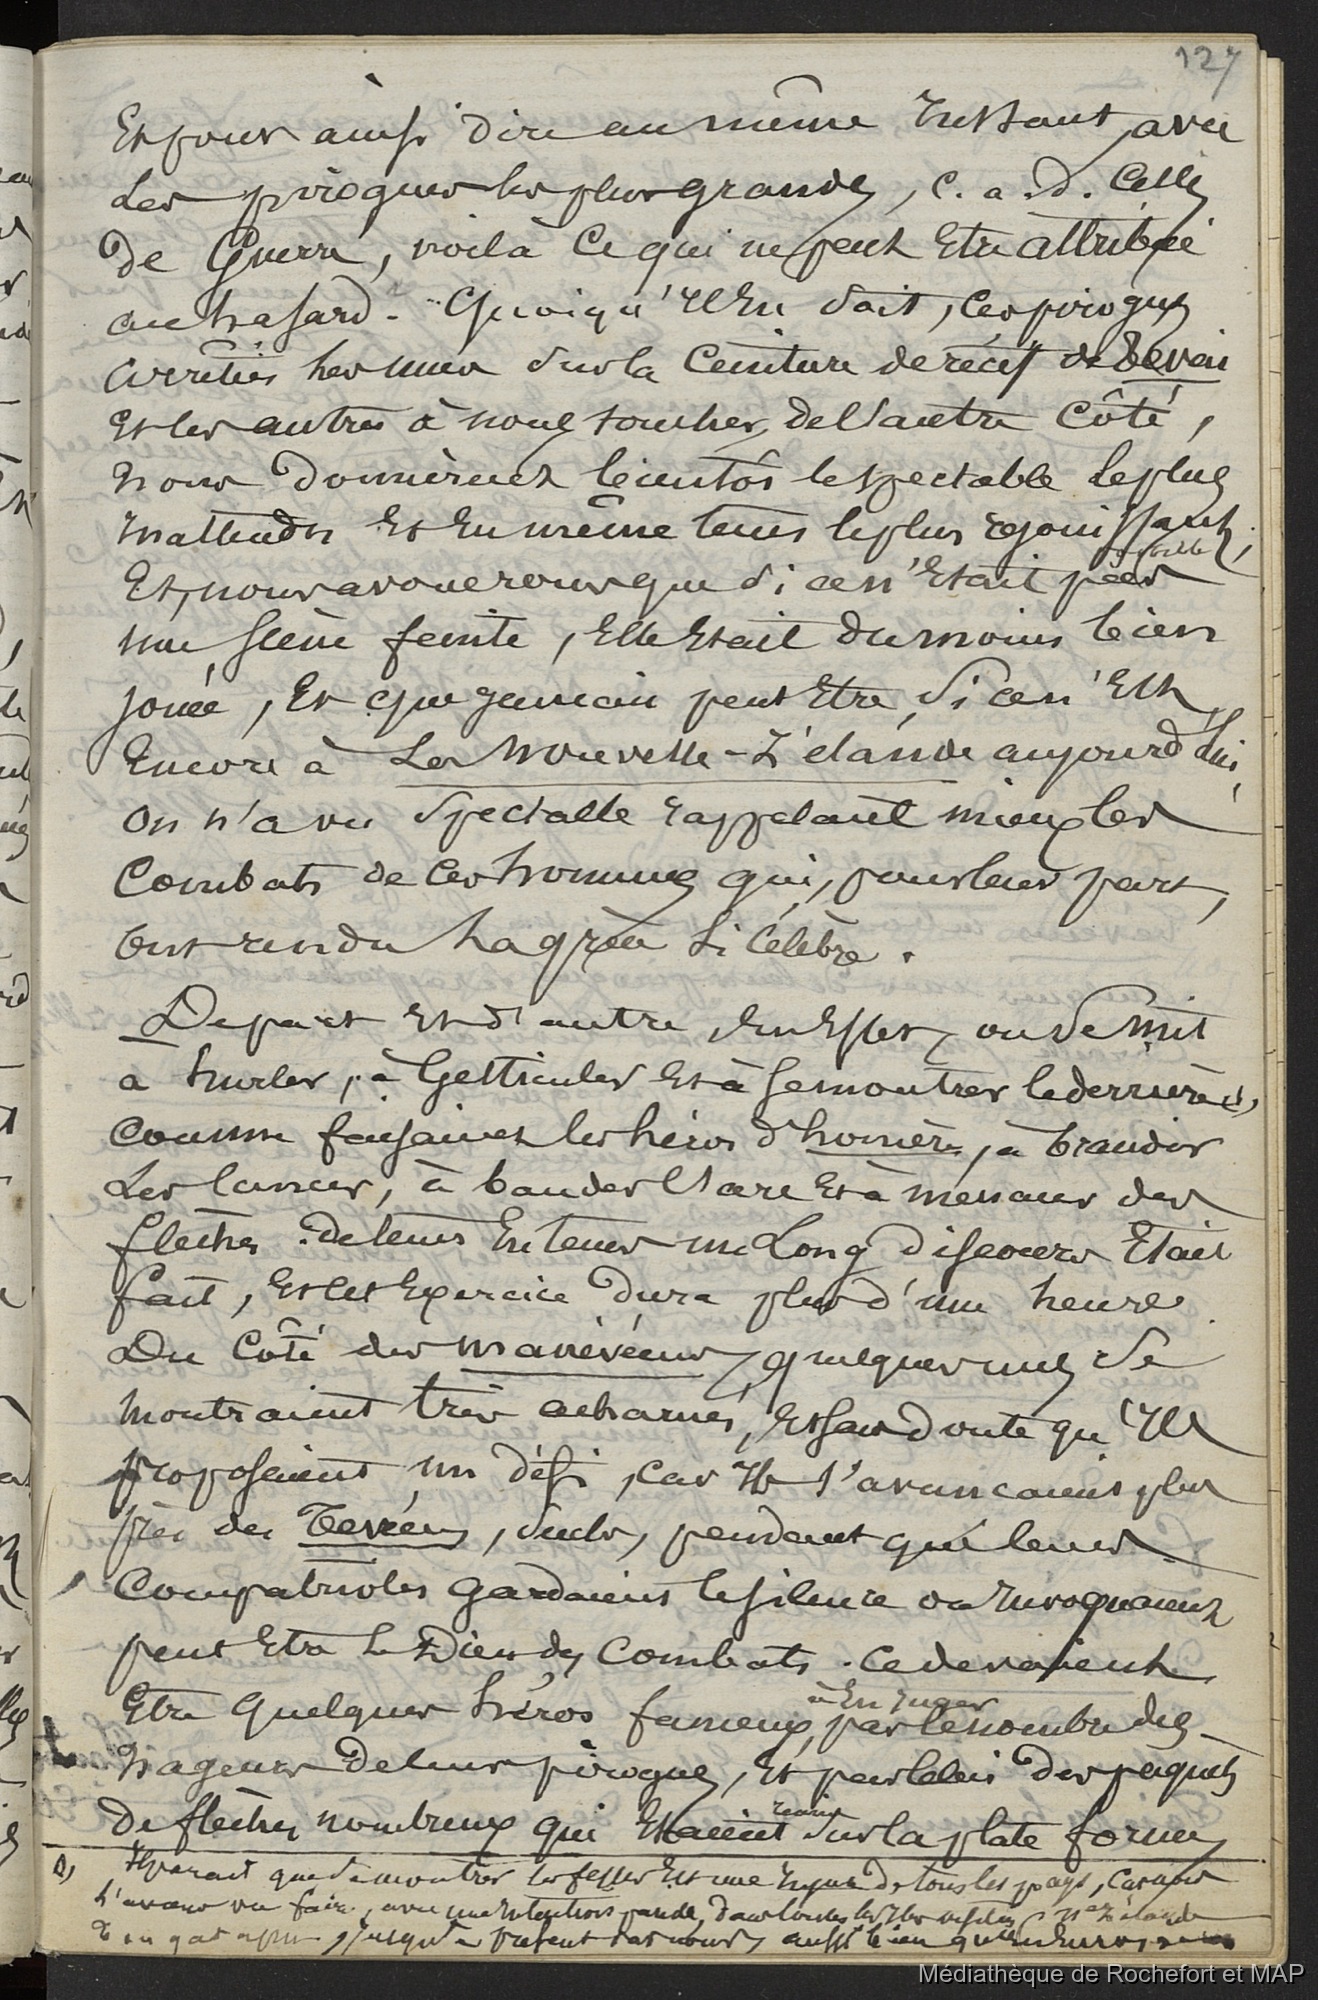 127
Et pour ainsi dire au même Instant, avec
Les pirogues les plus grandes, c. a. d. Celles
De Guerre, voilà Ce qui ne peut Etre attribué
au hasard. Quoiqu'Il En soit, Ces pirogues
arrêtées les unes sur la Ceinture de récif de Tevai
Et les autres à nous toucher, de l'autre Côté,
nous Donnèrent bientôt le spectable le plus
Inattendu Et En même tems le plus réjouissant;
Et, nous avouerons que si ce n'Etait pas
une scène feinte, Elle Etait du moins bien
jouée, Et que jamais peut Etre, si ce n'Est
Encore à La Nouvelle-Zélande aujourd'hui,
On n'a vu spectable rappelant mieux les
Combats de Ces hommes qui, pour leur part,
Ont rendu La grèce si Célèbre.
De part Et d'autre, En Effet, on se mit
a hurler, à Gesticuler Et à se montrer le derrière (1),
Comme faisaient les héros d'homère, à brandir
Les lances, à bander l'arc Et à menacer des
flèches. de tems En tems un Long discours Etait
fait, Et cet Exercice dura plus d'une heure.
Du Côté des manévéens, quelques uns se
montraient très acharnés, Et sans doute qu'Ils
proposaient un défi, car Ils s'avancaient plus
près des Tevéens, seuls, pendant que leurs
Compatriotes gardaient le silence ou Invoquaient
peut Etre Le Dieu des Combats. Ce devaient
Etre quelques héros fameux, à En juger par le nombre des
nageurs de leurs pirogues, Et par celui des paquets
De flèches nombreux qui Etaient réunis sur la plate forme
(1) Il parait que se montrer les fesses Est une Injure de tous les pays, car nous
L'avons vu faire, avec une Intention pareille, dans toutes les Iles visitées, à la Nlle Zélande
jusqu'à présent nous, aussi bien qu'En Europe
Médiathèque de Rochefort et MAP